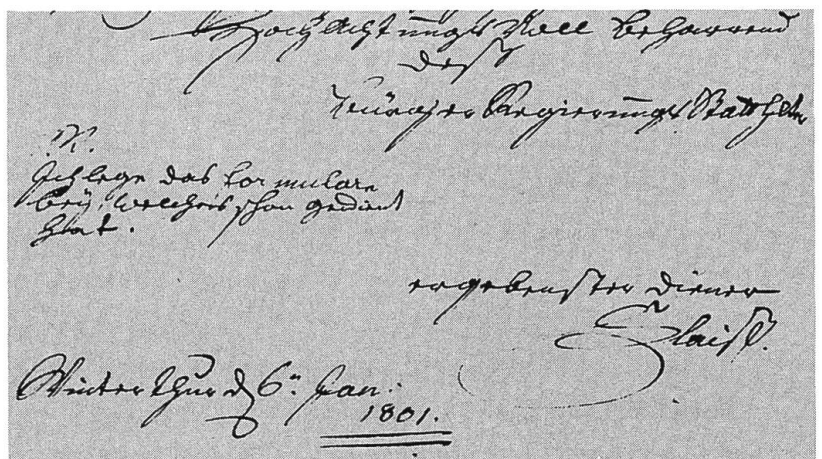 Hochachtungs Voll beharrend
deß
Bürger Regierungs Statthalter
N.
Ich lege das formulare
bey, welcheis schon gedient
hat.
ergebenster Diener
Winterthur d 6n Jan:
1801.